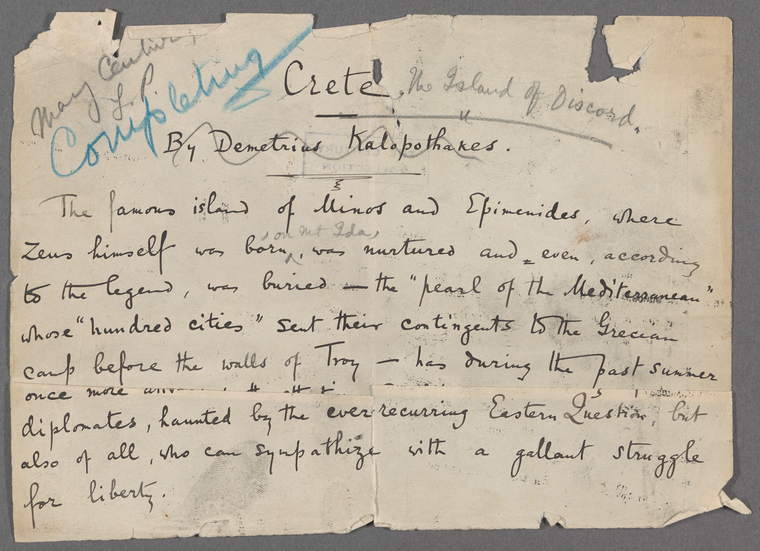 May Century
Completing
Crete, "The Island of Discord."
By Demetrius Kalopothakes.
The famous island of Minos and Epimenides, where
on Mt Ida,
Zeus himself was born, was nurtured and even, according
to the legend, was buried — the "pearl of the Mediterranean"
whose "hundred cities" sent their contingents to the Grecian
camp before the walls of Troy — has during the past summer
once more
diplomates, haunted by the ever-recurring Eastern Question, but
also of all, who can sympathize with a gallant struggle
for liberty.